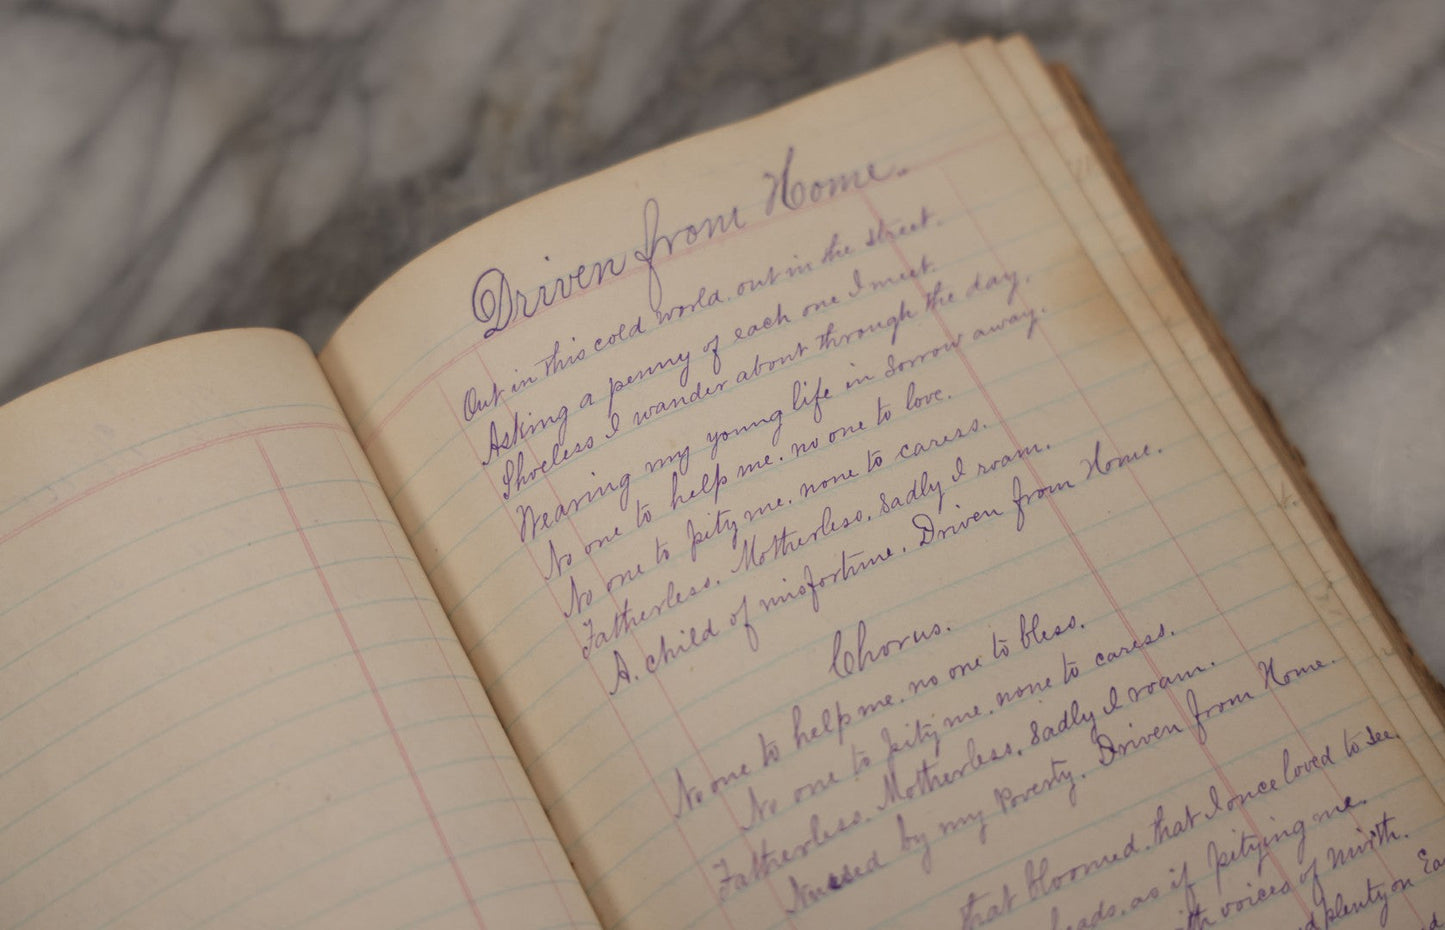 Driven from Home.
Out in this cold world. out in the street.
Asking a penny of each one I meet.
Shoeless I wander about through the day.
Wearing my young life in sorrow away.
No one to help me. no one to love.
No one to pity me. none to caress.
Fatherless. Motherless. Sadly I roam.
A. child of misfortune. Driven from Home.
Chorus.
No one to help me. no one to bless.
No one to pity me. none to caress.
Fatherless. Motherless. Sadly I roam.
by my Poverty. Driven from Home.
that bloomed. that I once loved to see.
heads. as if pitying me.
with voices of mirth.
plenty on